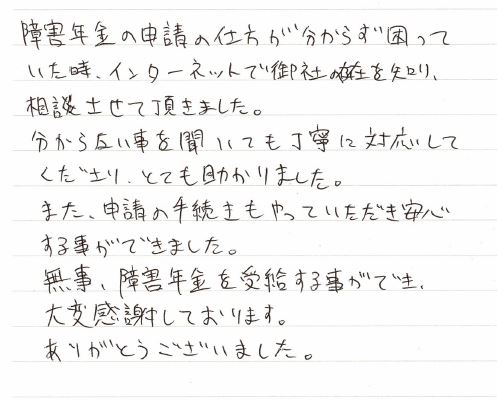 障害年金の申請の仕方が分からず困って
いた時、インターネットで御社の存在を知り、
相談させて頂きました。
分からない事を聞いても丁寧に対応して
くださり、とても助かりました。
また、申請の手続きもやっていただき安心
する事ができました。
無事、障害年金を受給する事ができ、
大変感謝しております。
ありがとうございました。